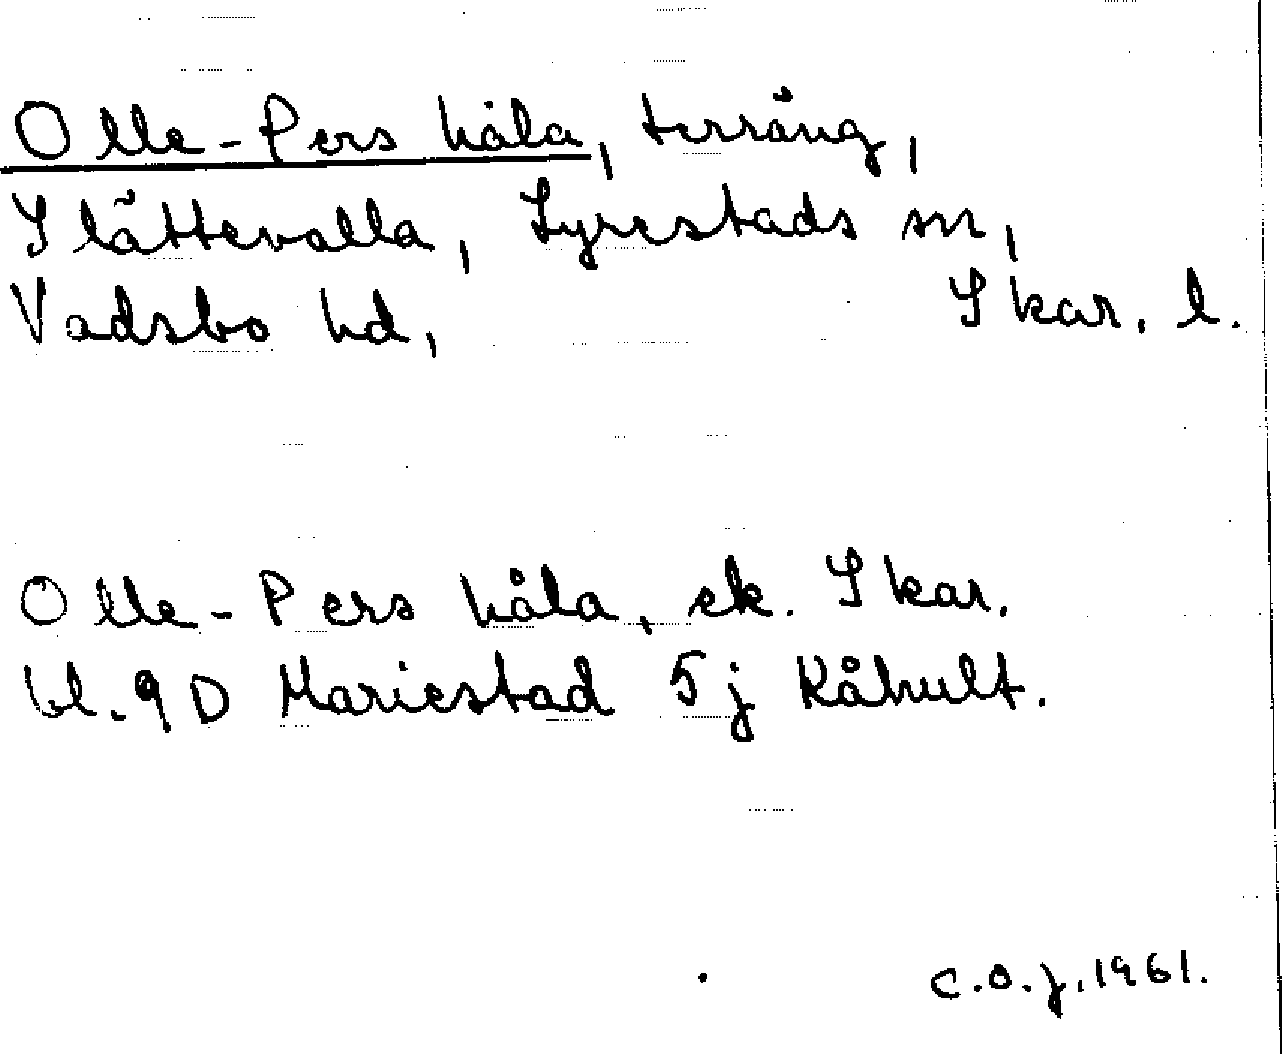 Olle-Pers håla, terräng,
Slättevalla, Lyrestads sn,
Vadsbo hd, Skar. l.
Olle-Pers håla, ek. Skar.
bl. 9D Mariestad 5j Kåhult.
C.O.J. 1961.